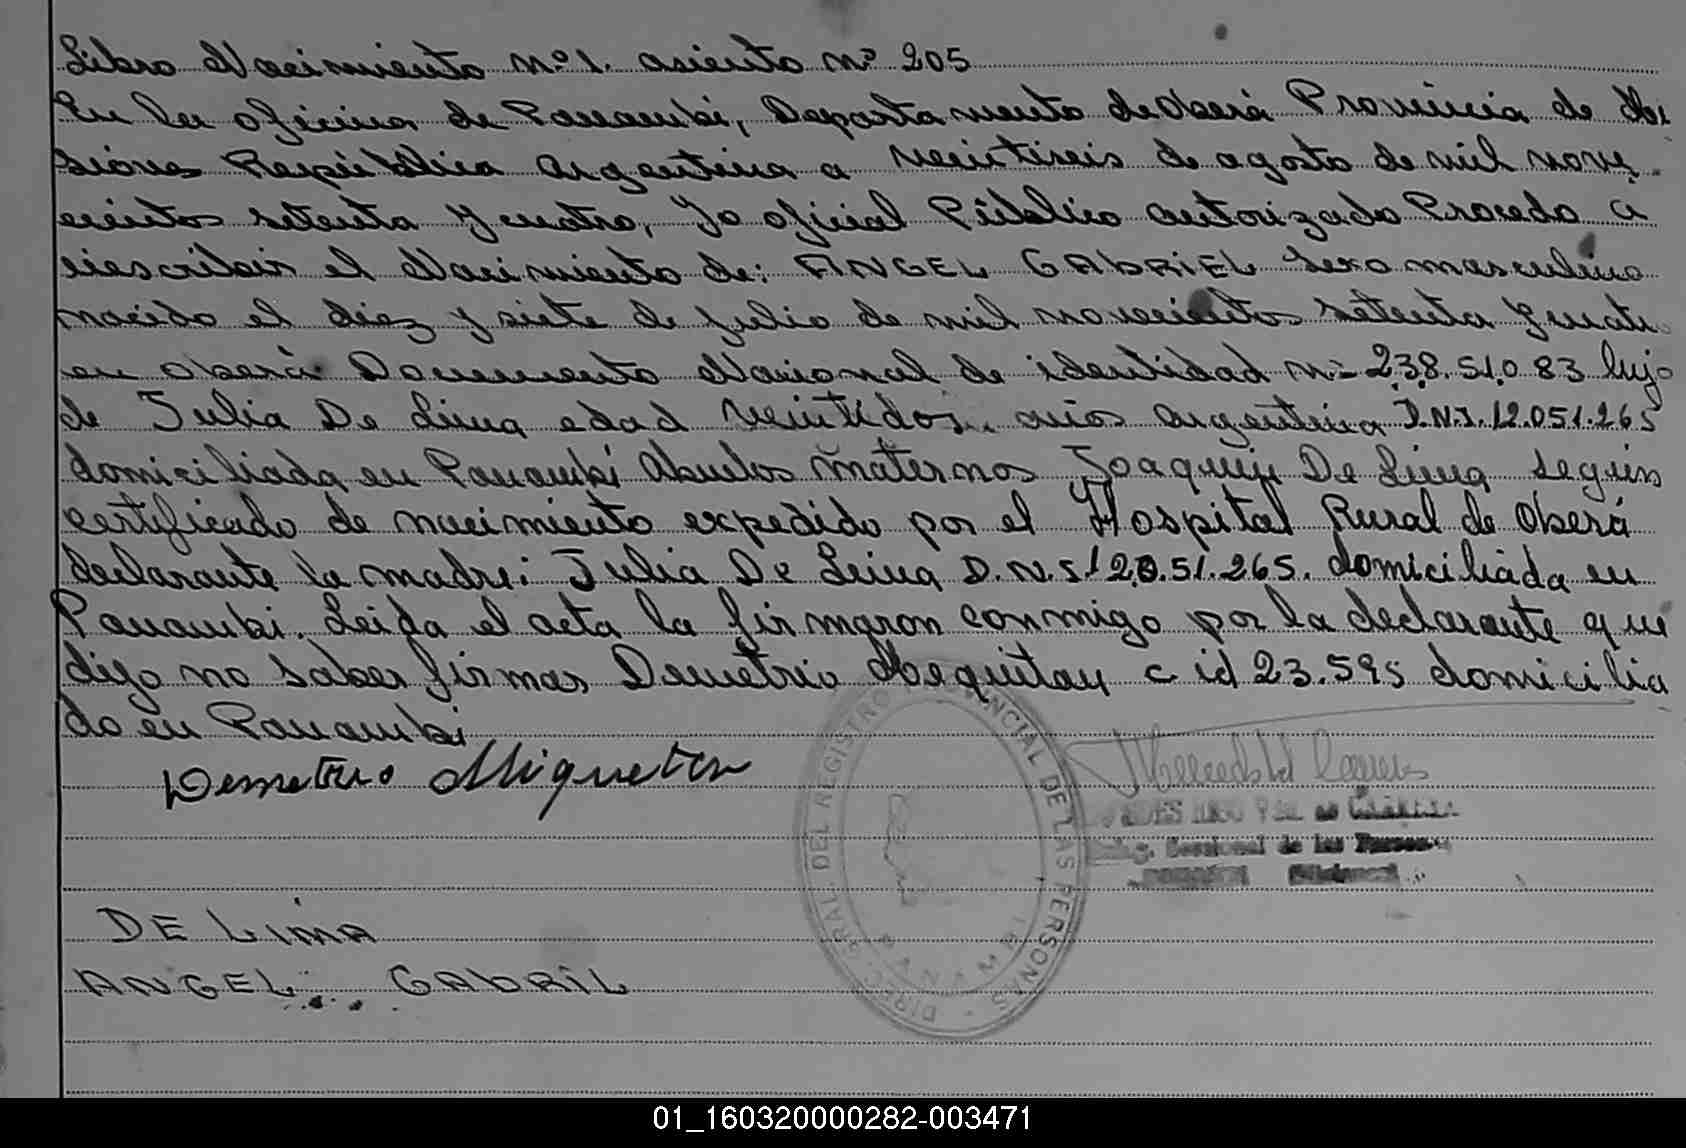 Libro Nacimiento Nº 1. asiento Nº 205
En la oficina de Panambi, Departamento de Oberá Provincia de Mi
siones República Argentina a veintiseis de agosto de mil nove
cientos setenta y cuatro, Yo oficial Público autorizado Procedo a
inscribir el Nacimiento de: ANGEL GABRIEL sexo masculino
nacido el diez y siete de julio de mil novecientos setenta y cuatro
en Oberá Documento Nacional de identidad Nº 23.851.083 hijo
de Julia De Lima edad veintidos años argentina D.N.I. 12.051.265
domiciliada en Panambi Abuelos maternos Joaquin De Lima según
certificado de nacimiento expedido por el Hospital Rural de Oberá
declarante la madre: Julia De Lima D.N.I 12.051.265. domiciliada en
Panambi. Leida el acta la firmaron conmigo por la declarante que
dijo no saber firmar Demetrio Mequitau c id 23.595 domicilia
do en Panambi
Demetrio
DIREC. GRAL. DEL REGISTRO PROVINCIAL DE LAS PERSONAS
PANAMBI
de las
DE LIMA
ANGEL GABRIL
01_160320000282-003471